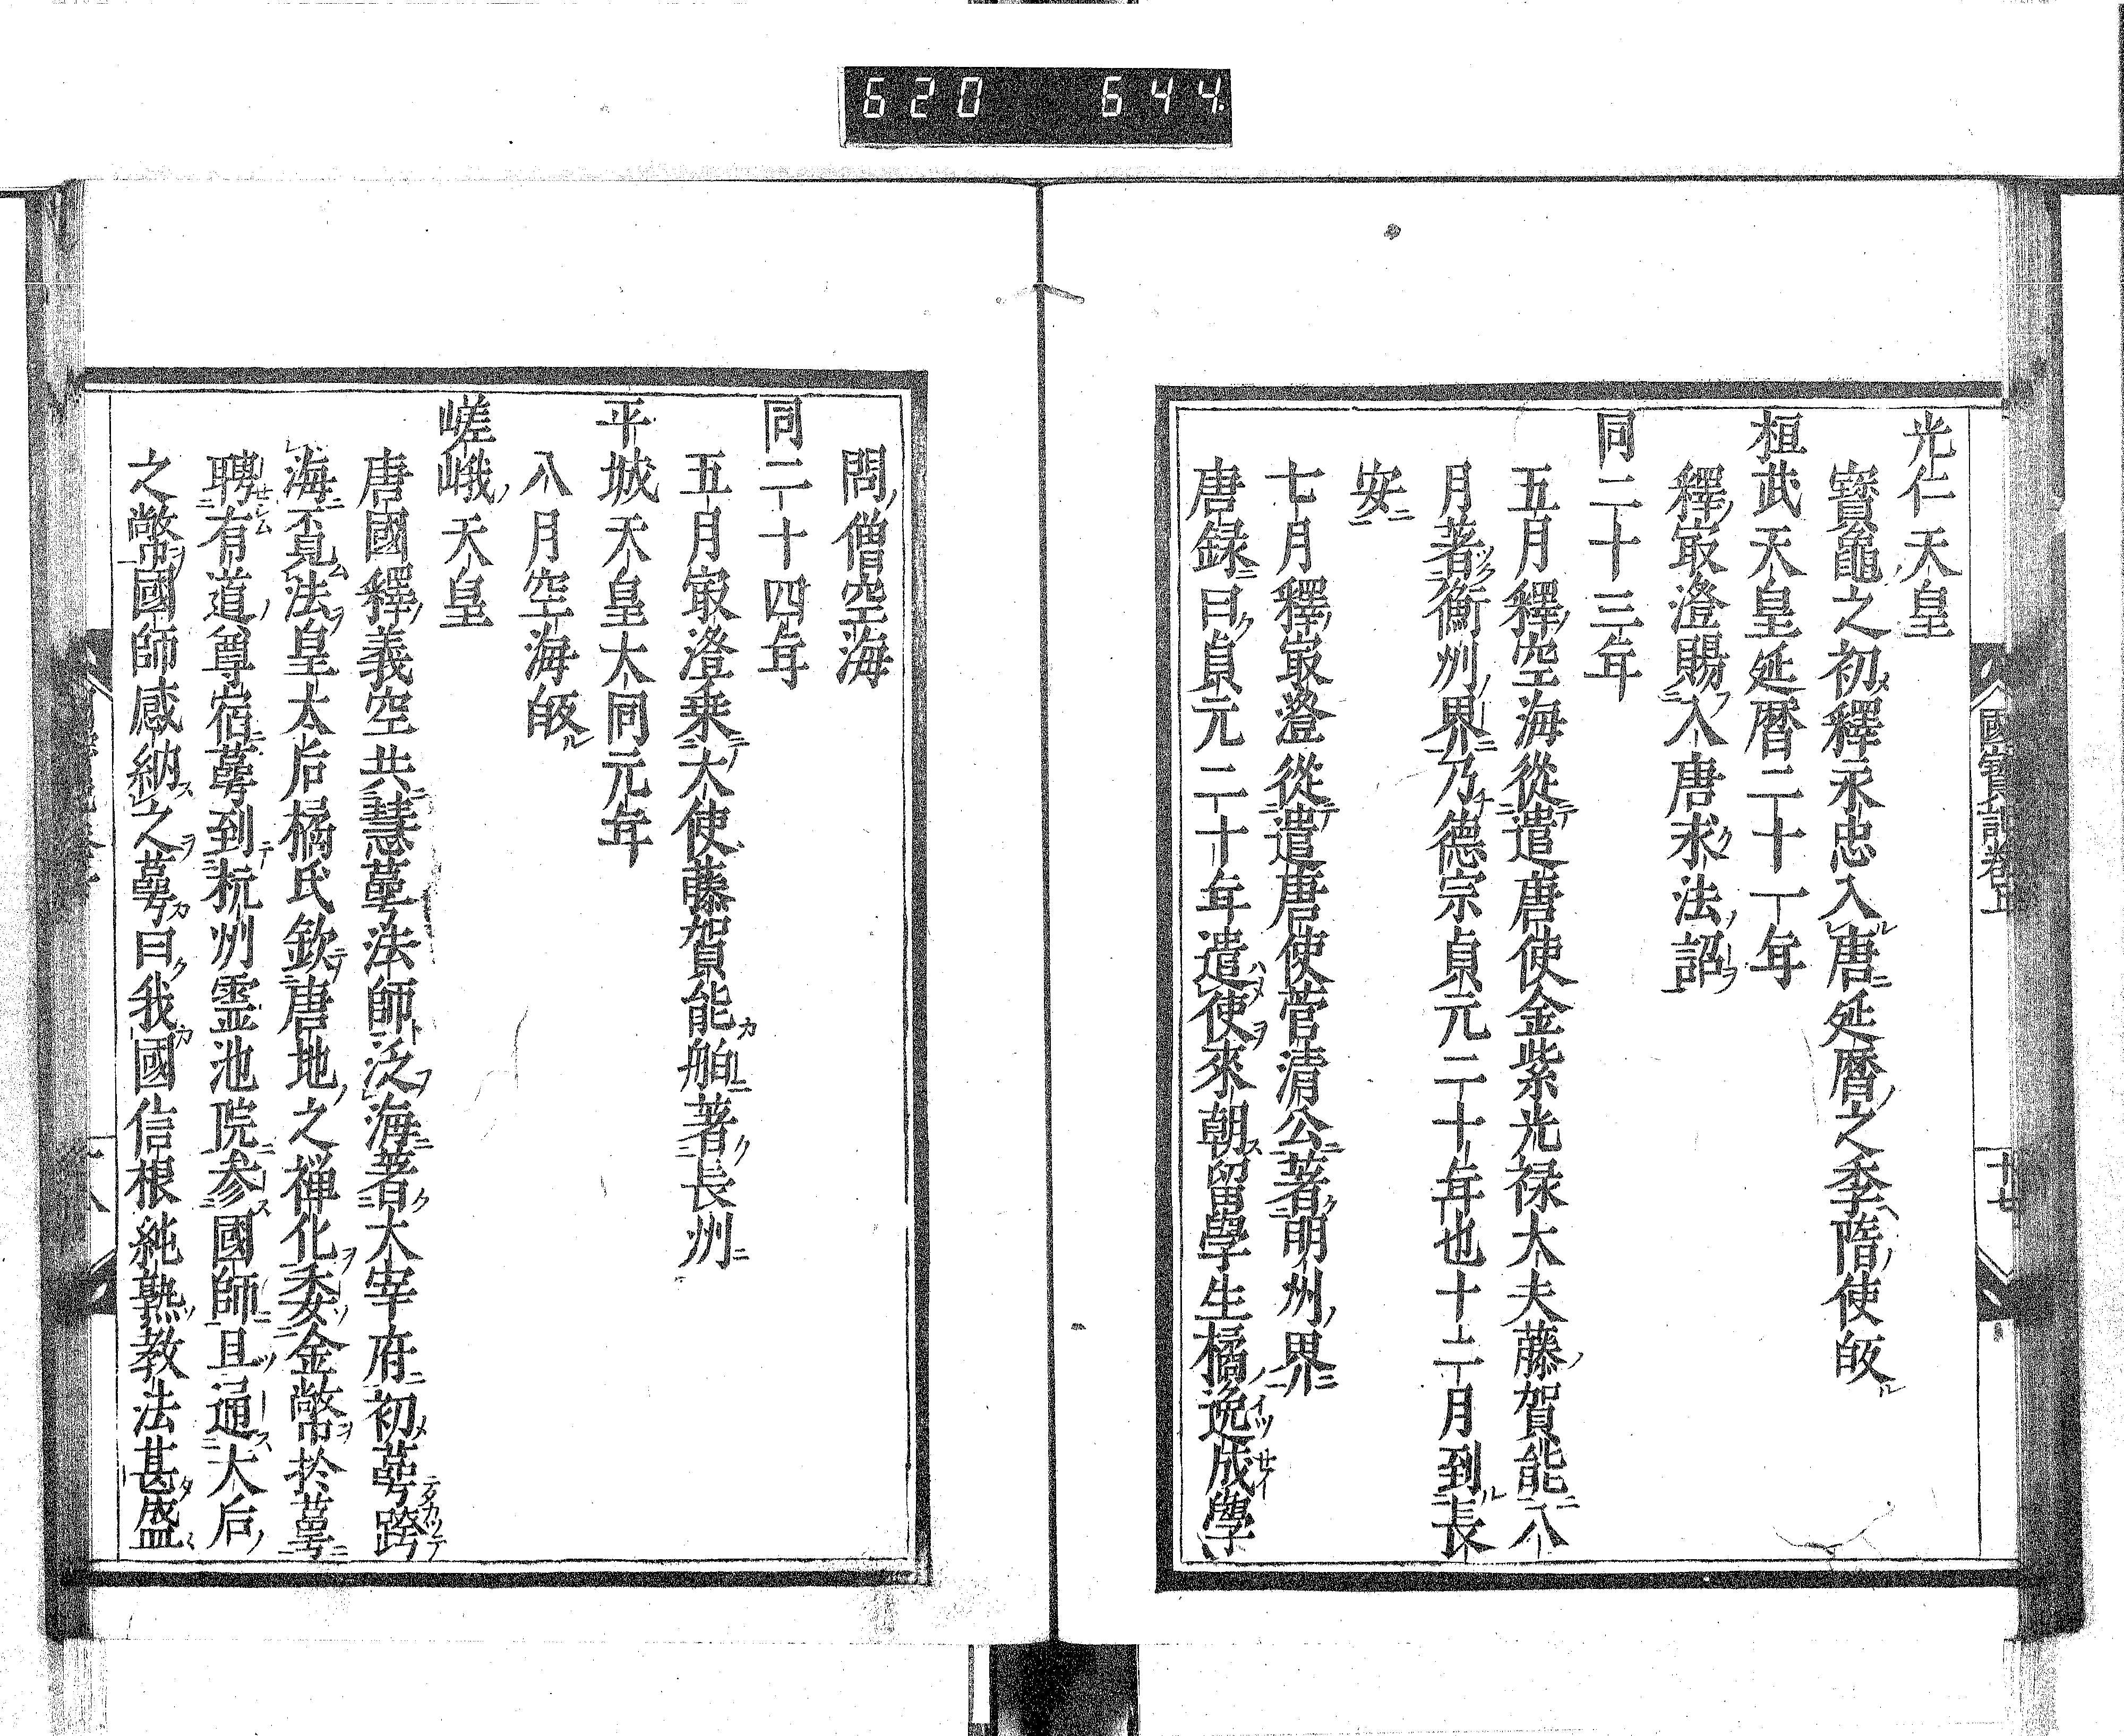 620 644
光仁天皇
寶龜之初釋永忠入唐延曆之季隋使皈
桓武天皇延暦二十一年
釋最澄賜入唐求法詔
同二十三年
五月釋空海從遣唐使金紫光禄大夫藤賀能八
月著衡州界乃德宗貞元二十年也十二月到長
安
七月釋最澄從遣唐使菅清公著明州界
唐録曰貞元二十年遣使來朝留學生橘逸成學
問僧空海
同二十四年
五月最澄乗大使藤賀能舶著長州
平城天皇大同元年
八月空海皈
嵯峨天皇
唐國釋義空共慧萼法師泛海著大宰府初萼跨
海不覓法皇太后橘氏欽唐地之禅化委金幣於萼
聘有道尊宿萼到杭州霊池院参國師且通大后
之幣國師感納之萼曰我國信根純熟教法甚盛